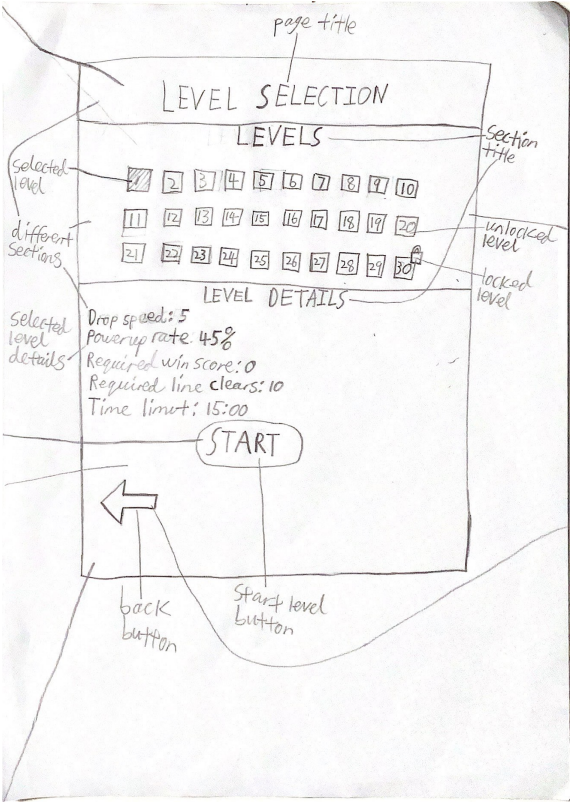 page title
LEVEL SELECTION
LEVELS
section
title
selected
level
1 2 3 4 5 6 7 8 9 10
11 12 13 14 15 16 17 18 19 20
unlocked
level
different
sections
21 22 23 24 25 26 27 28 29 30
locked
level
LEVEL DETAILS
selected
level
details
Drop speed: 5
Powerup rate: 45%
Required win score: 0
Required line clears: 10
Time limit: 15:00
START
back
button
Start level
button